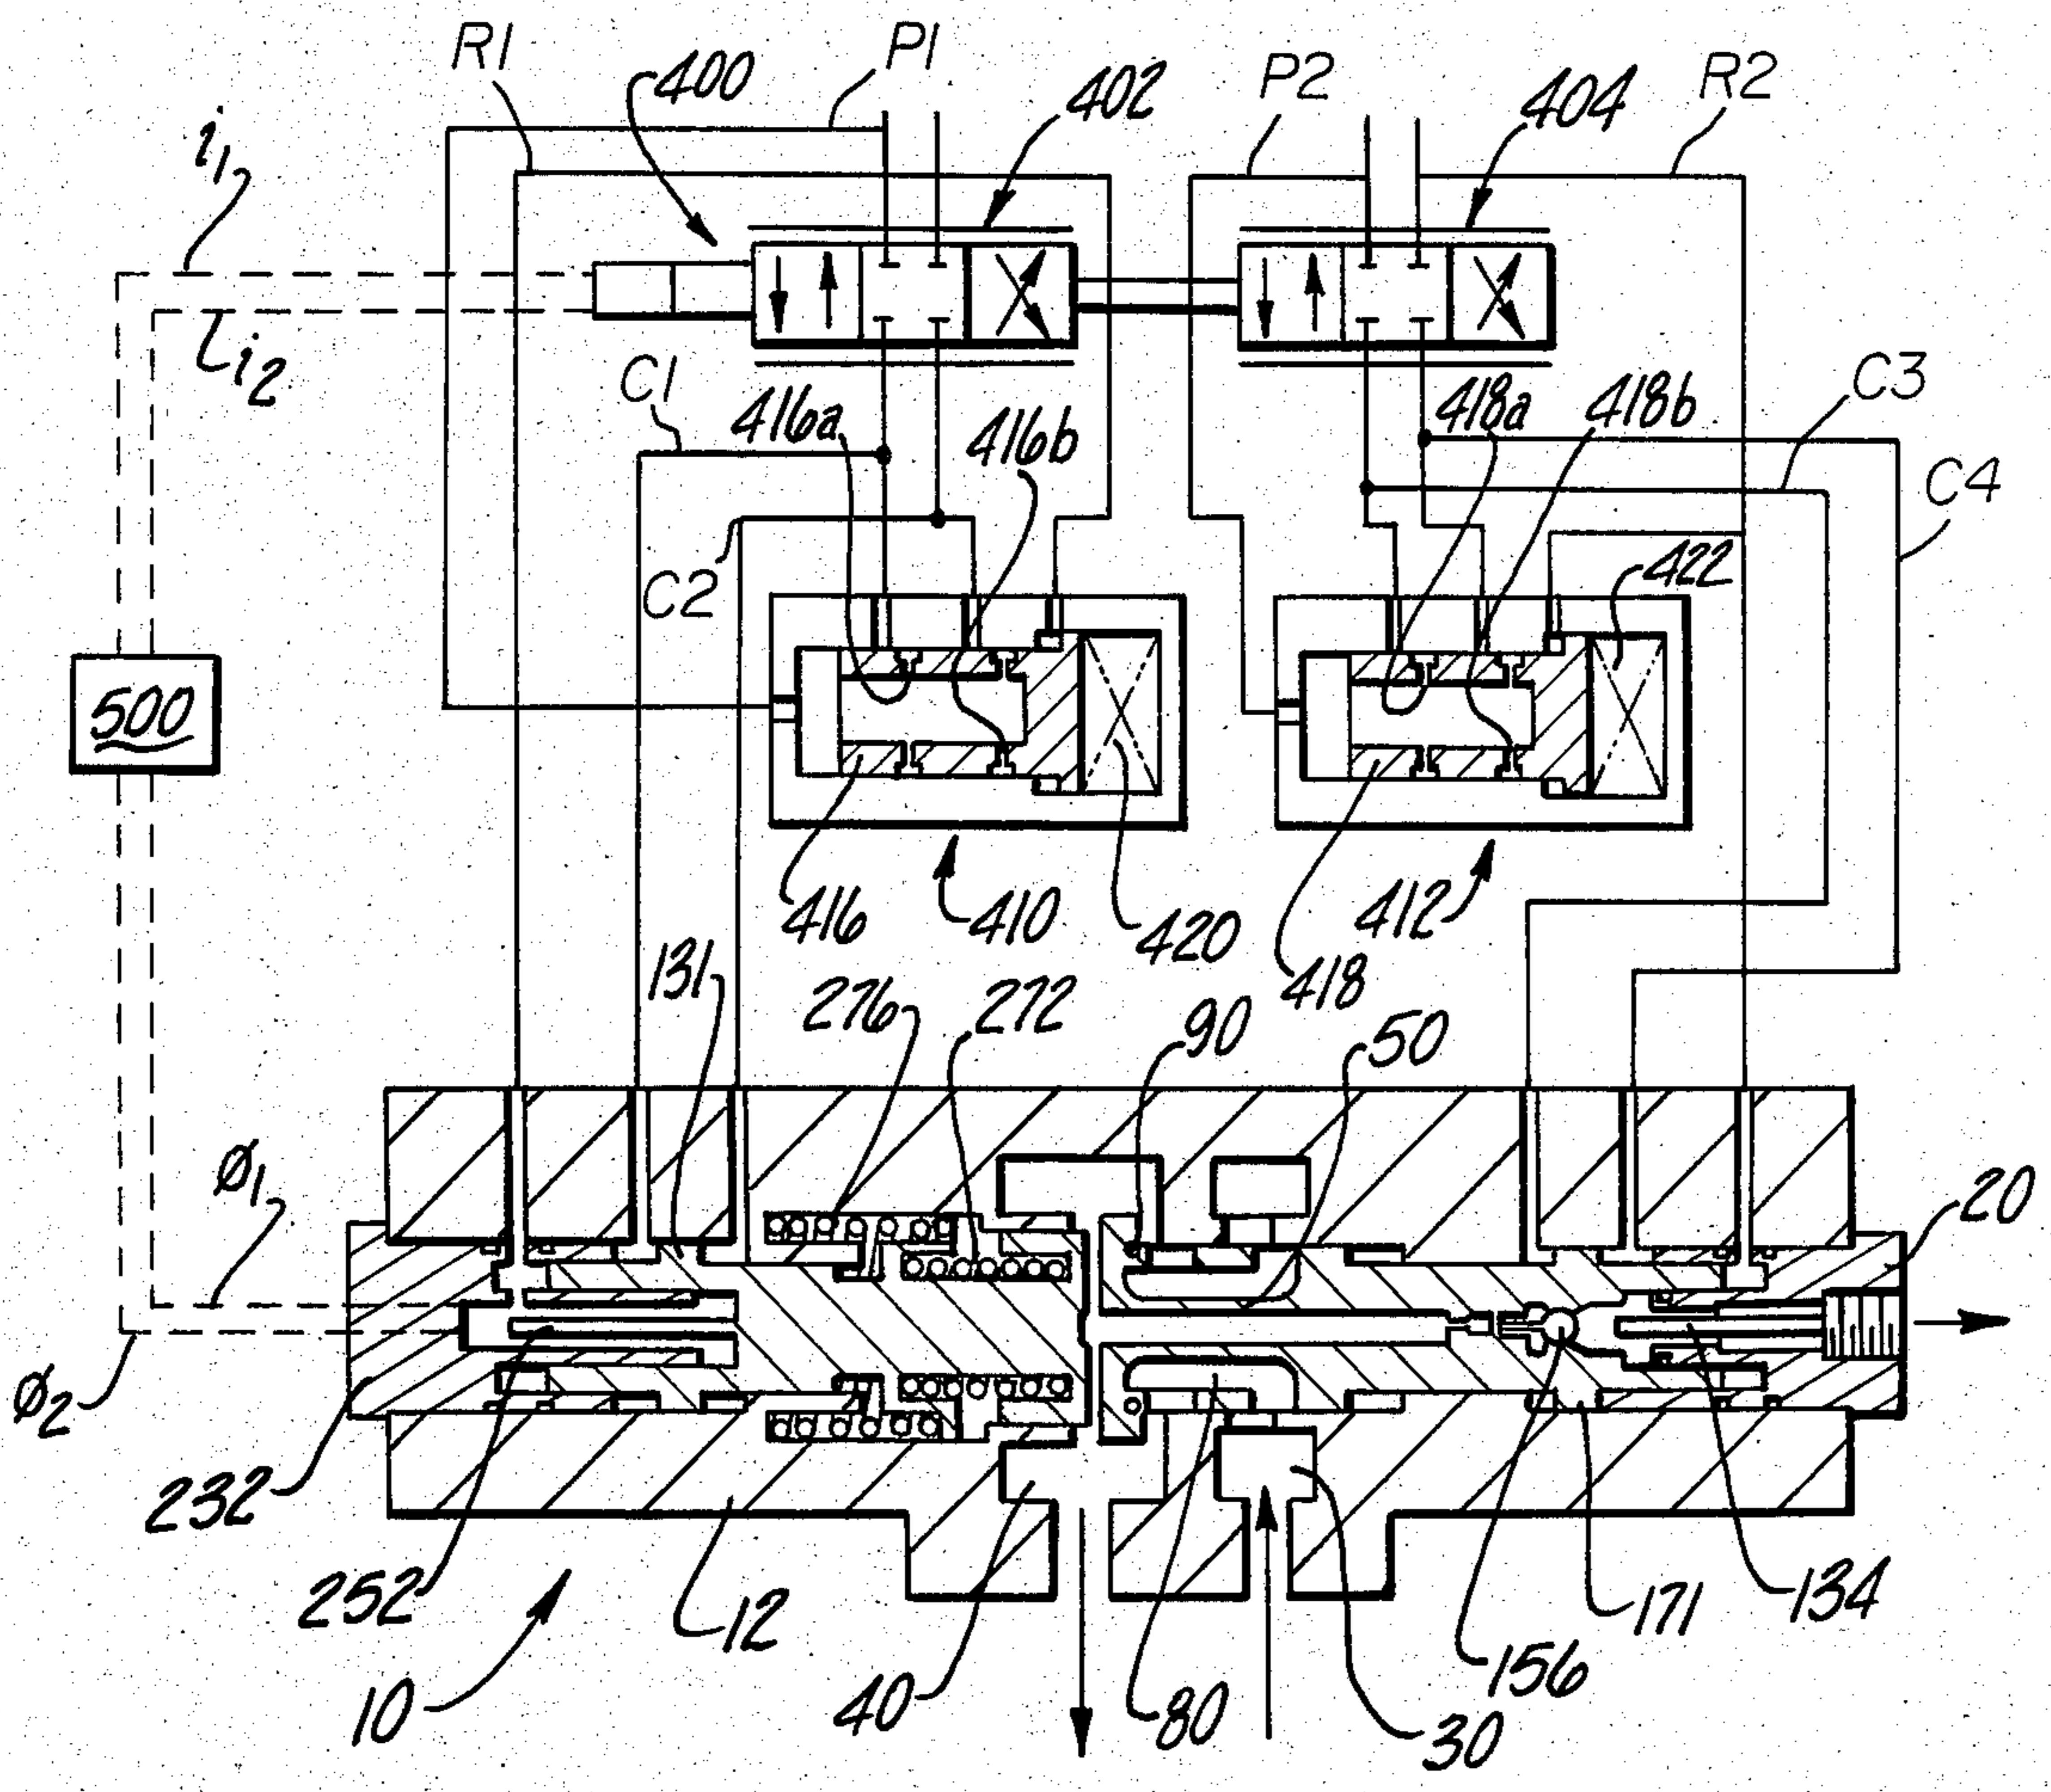 R1
400
P1
402
P2
404
R2
i1
i2
C1
416a
416b
418a
418b
C3
C4
C2
422
500
416
410
420
412
418
131
276
272
90
50
Ø1
20
Ø2
232
252
12
10
40
80
30
156
171
134